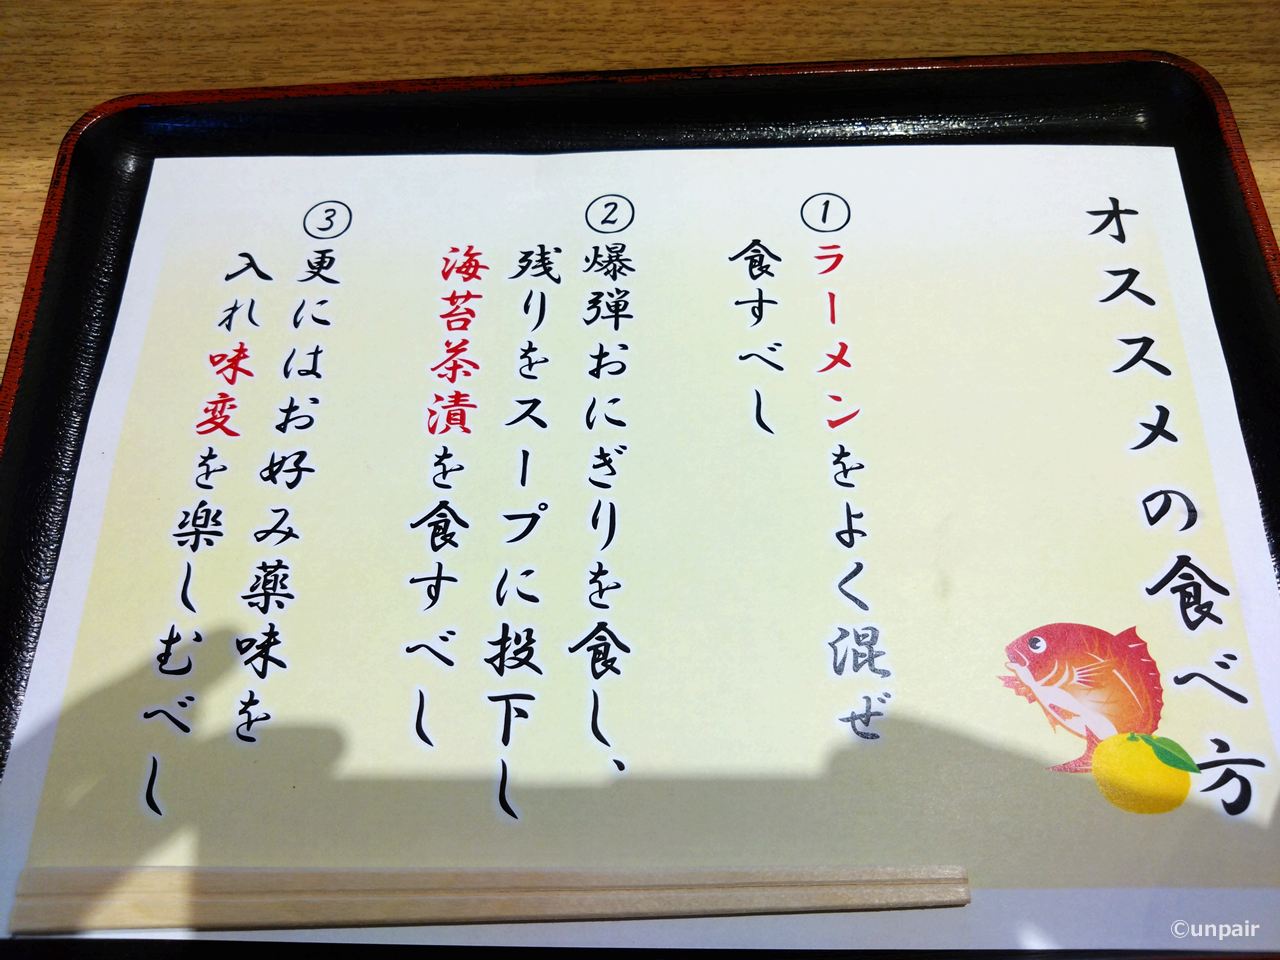 オススメの食べ方
①ラーメンをよく混ぜ
食すべし
②爆弾おにぎりを食し、
残りをスープに投下し
海苔茶漬を食すべし
③更にはお好み薬味を
入れ味変を楽しむべし
©unpair